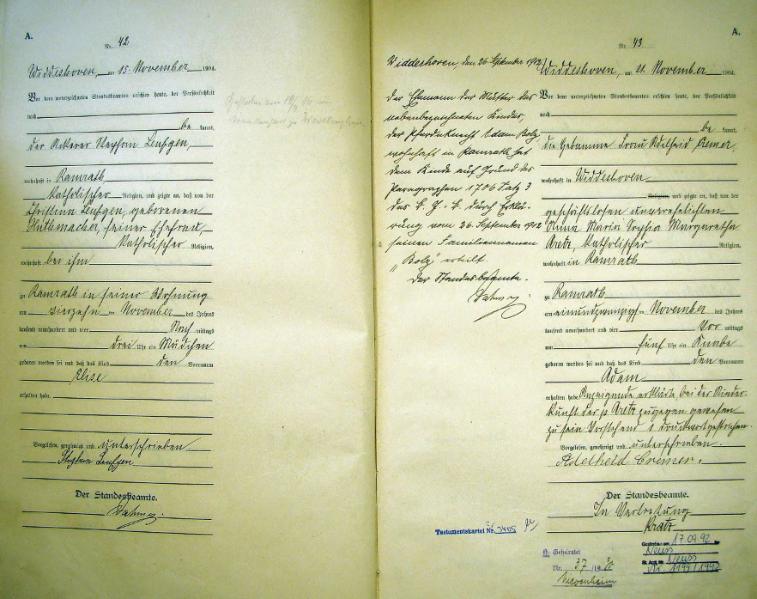 A.
Nr. 42
Widdeshoven, am 15. November 1904.
Vor dem unterzeichneten Standesbeamten erschien heute, der Persönlichkeit
nach
be kannt,
der Ackerer Stephan Leufgen,
wohnhaft in Ramrath
katholischer Religion, und zeigte an, daß von der
Christina Leufgen, geborenen
seiner Ehefrau
katholischer Religion,
wohnhaft bei ihm
zu Ramrath in seiner Wohnung
am vierzehn ten November des Jahres
tausend neunhundert und vier Nach mittags
um drei Uhr ein Mädchen
geboren worden sei und daß das Kind den Vornamen
Elise
erhalten habe.
Vorgelesen, genehmigt und unterschrieben
Stephan Leufgen
Der Standesbeamte.
A.
Nr. 43
Widdeshoven, den 26. September 1902
Der Ehemann der Mutter des
nebenbezeichneten Kindes,
der Pferdeknecht Adam Bolz
wohnhaft in Ramrath hat
dem Kinde auf Grund des
Paragraphen 1706 Satz 3
des B. G. B. durch Erklä-
rung vom 26. September 1902
seinen Familiennamen
"Bolz" erteilt
Der Standesbeamte.
Widdeshoven, am 21. November 1904.
Vor dem unterzeichneten Standesbeamten erschien heute, der Persönlichkeit
nach
be kannt,
die Hebamme Frau Adelheid Cremer
wohnhaft in Widdeshoven
Religion, und zeigte an, daß von der
geschäftslosen unverehelichten
Anna Maria Sophia Margaretha
Aretz, katholischer Religion,
wohnhaft in Ramrath
zu Ramrath
am einundzwanzigsten November des Jahres
tausend neunhundert und vier Vor mittags
um fünf Uhr ein Knabe
geboren worden sei und daß das Kind den Vornamen
Adam
erhalten habe. Anzeigende erklärte, bei der Nieder-
kunft der p. Aretz zugegen gewesen
zu sein. Vorstehend 1 Druckwort gestrichen.
Vorgelesen, genehmigt und unterschrieben.
Adelheid Cremer.
Der Standesbeamte.
In Vertretung
Kratz
Testamentskartei Nr.
Geheiratet
Nr. 37/19
Nievenheim
Gestorben am 17.09.92
Neuss
St. Amt Neuss